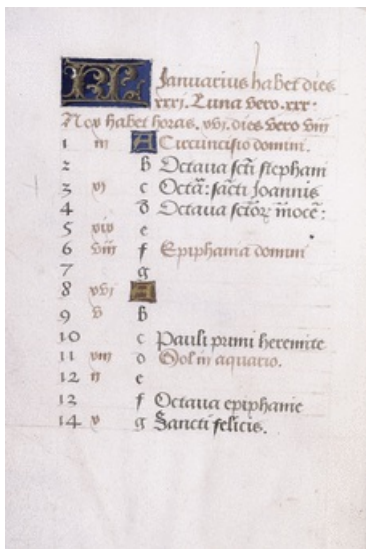 KL Januarius habet dies
xxxj. Luna vero. xxx.
Nox habet horas. xvj. dies vero viij
1 iij A Circuncisio domini.
2 b Octaua scti stephani
3 xj c Octa: sancti Joannis
4 d Octaua sctoꝝ inocē:
5 xix e
6 viij f Epiphania domini
7 g
8 xvj A
9 v b
10 c Pauli primi heremite
11 d Sol in aquario.
12 ij e
13 f Octaua epiphanie
14 g Sancti felicis.